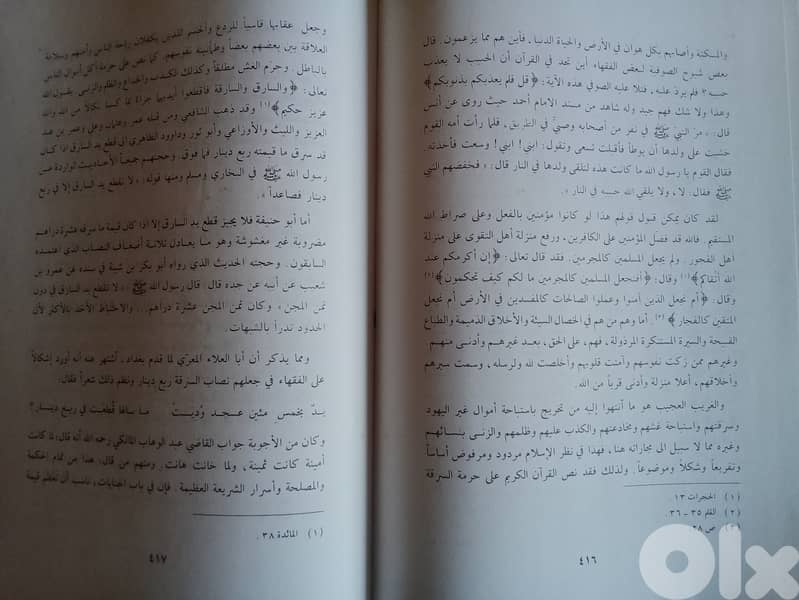 والمسكنة وأصابهم بكل هوان في الأرض والحياة الدنيا ـ فأين هم مما يزعمون. قال
بعض شيوخ الصوفية لبعض الفقهاء أين تجد في القرآن أن الحبيب لا يعذب
حبيبه؟ فلم يرد عليه، فتلا عليه الصوفي هذه الآية: ﴿قل فلم يعذبكم بذنوبكم﴾
وهذا ولا شك فهم جيد وله شاهد من مسند الامام أحمد حيث روى عن أنس
قال: «مرّ النبي ﷺ في نفر من أصحابه وصبيّ في الطريق، فلما رأت أمه القوم
خشيت على ولدها أن يوطأ فأقبلت تسعى وتقول: ابني! ابني! وسعت فأخذته.
فقال القوم يا رسول الله ما كانت هذه لتلقى ولدها في النار قال: «فخفضهم النبي
ﷺ فقال: لا، ولا يلقي الله حبيبه في النار».
لقد كان يمكن قبول قولهم هذا لو كانوا مؤمنين بالفعل وعلى صراط الله
المستقيم. فالله قد فضل المؤمنين على الكافرين، ورفع منزلة أهل التقوى على منزلة
أهل الفجور. ولم يجعل المسلمين كالمجرمين. فقد قال تعالى: ﴿إن أكرمكم عند
الله أتقاكم﴾(١) وقال: ﴿أفنجعل المسلمين كالمجرمين ما لكم كيف تحكمون﴾(٢)
وقال: ﴿أم نجعل الذين آمنوا وعملوا الصالحات كالمفسدين في الأرض أم نجعل
المتقين كالفجار﴾(٣). أما وهم من هم في الخصال السيئة والأخلاق الذميمة والطباع
القبيحة والسيرة المستنكرة المرذولة، فهم، على الحق، بعد غيرهم وأدنى منهم.
وغيرهم ممن زكت نفوسهم وآمنت قلوبهم وأخلصت لله ولرسله، وسمت سيرهم
وأخلاقهم، أعلا منزلة وأدنى قرباً من الله.
والغريب العجيب هو ما أنتهوا إليه من تخريج بإستباحة أموال غير اليهود
وسرقتهم واستباحة غشهم ومخادعتهم والكذب عليهم وظلمهم والزنى بنسائهم
وغيره مما لا سبيل الى مجاراته هنا، فهذا في نظر الإسلام مردود ومرفوض أساساً
وتفريعاً وشكلاً وموضوعاً. ولذلك فقد نص القرآن الكريم على حرمة السرقة
(١) الحجرات ١٣
(٢) القلم ٣٥ - ٣٦.
(٣) ص ٢٨
٤١٦
وجعل عقابها قاسياً للردع وأخسر للذين يكفلان راحة الناس وأمنهم وسلامة
العلاقة بين بعضهم بعضاً وطمأنينة نفوسهم. كما نص على حرمة أكل أموال الناس
بالباطل. وحرّم الغش مطلقاً وكذلك الكذب والخداع والظلم والزنى. بقول الله
تعالى: ﴿والسارق والسارقة فاقطعوا أيديهما جزاء بما كسبا نكالاً من الله والله
عزيز حكيم﴾(١) وقد ذهب الشافعي ومن قبله عمر وعثمان وعلي وعمر بن عبد
العزيز والليث والأوزاعي وأبو ثور وداوود الظاهري الى قطع يد السارق إذا كان
قد سرق ما قيمته ربع دينار فما فوق. وحجتهم جميعاً الأحاديث الواردة عن
رسول الله ﷺ في البخاري ومسلم ومنها قوله: «لا تقطع يد السارق إلا في ربع
دينار فصاعداً».
أما أبو حنيفة فلا يجيز قطع يد السارق إلا اذا كان قيمة ما سرقه عشرة دراهم
مضروبة غير مغشوشة وهو ما يعادل ثلاثة أضعاف النصاب الذي اعتمده
السابقون. وحجته الحديث الذي رواه أبو بكر بن شيبة في سنده عن عمرو بن
شعيب عن أبيه عن جده قال: قال رسول الله ﷺ: «لا تقطع يد السارق في دون
ثمن المجن» وكان ثمن المجن عشرة دراهم... والاحتياط الأخذ بالأكثر لأن
الحدود تدرأ بالشبهات.
ومما يذكر أن أبا العلاء المعرّي لما قدم بغداد، أشتهر عنه أنه أورد إشكالاً
على الفقهاء في جعلهم نصاب السرقة ربع دينار ونظم ذلك شعراً فقال:
يدٌ بخمسِ مئينِ عسجد وُديتْ ما بالها قُطعت في ربعِ دينار؟
وكان من الأجوبة جواب القاضي عبد الوهاب المالكي رحمه الله أنه قال: لما كانت
أمينة كانت ثمينة، ولما خانت هانت. ومنهم من قال: هذا من تمام الحكمة
والمصلحة وأسرار الشريعة العظيمة. فإن في باب الجنايات، ناسب أن تعظم قيمة
(١) المائدة ٣٨.
٤١٧
OLX